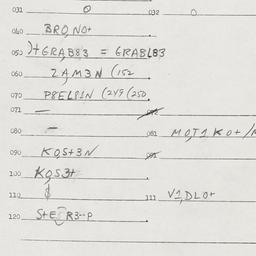 031 0 032 0
040 BRO,NO+
050 )+GRAB83 = GRABL83
060 ZAM3N (152
070 P8ELP1N (249 (250
071 — 072
080 — 081 MOT1 KO+ /
090 KOS+3N 091
100 KOS3+
110 111 V1,DLO+
120 S+E R3--P